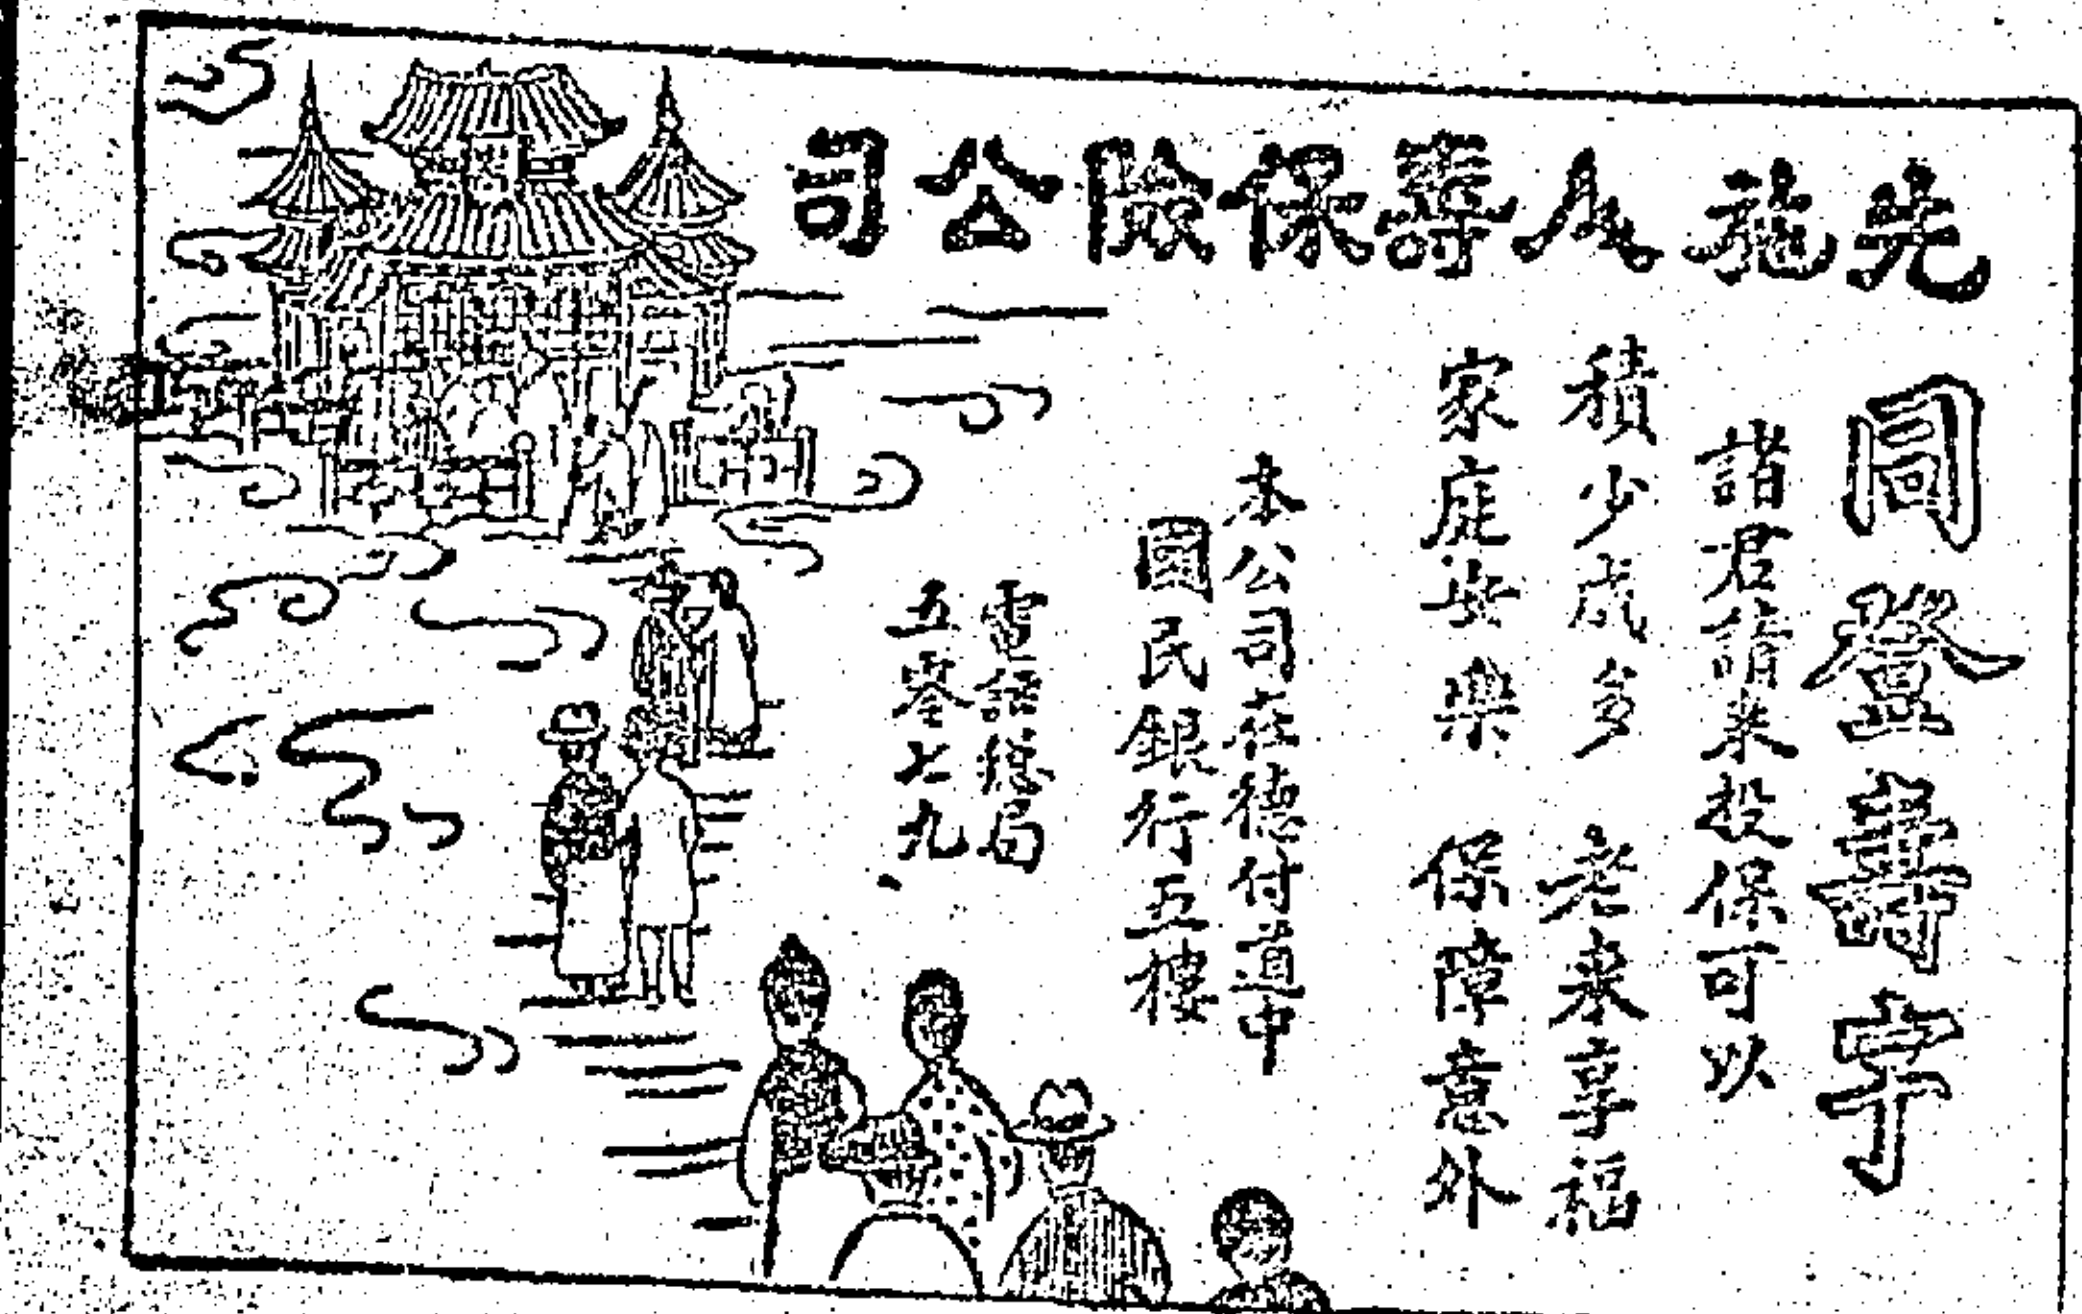 先施人壽保險公司
同登壽宇
諸君請來投保可以
積少成多 老來享福
家庭安樂 保障意外
本公司在德付道中
國民銀行五樓
電話總局
五零七九